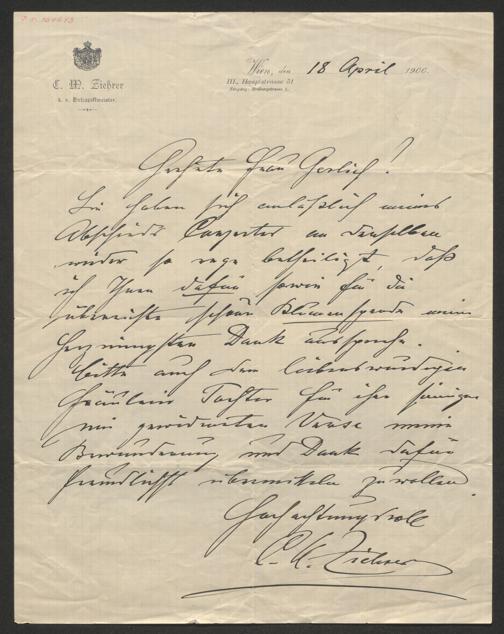 C. M. Ziehrer
k. u. k. Hofballmusikdirector.
Wien, den 18 April 1906.
III., Hauptstrasse 51
Geehrte Frau Gerlich!
Sie haben sich anläßlich meines
Abschieds Conzertes an denselben
wieder so rege betheiligt, daß
ich Ihnen dafür sowie für die
überreichte schöne Blumenspende meinen
herzinnigsten Dank ausspreche.
Bitte auch dem liebenswürdigen
Fräulein Tochter für ihre sinnigen
mir gewidmeten Verse meine
Bewunderung und Dank dafür
freundlichst übermitteln zu wollen
Hochachtungsvoll
C. M. Ziehrer